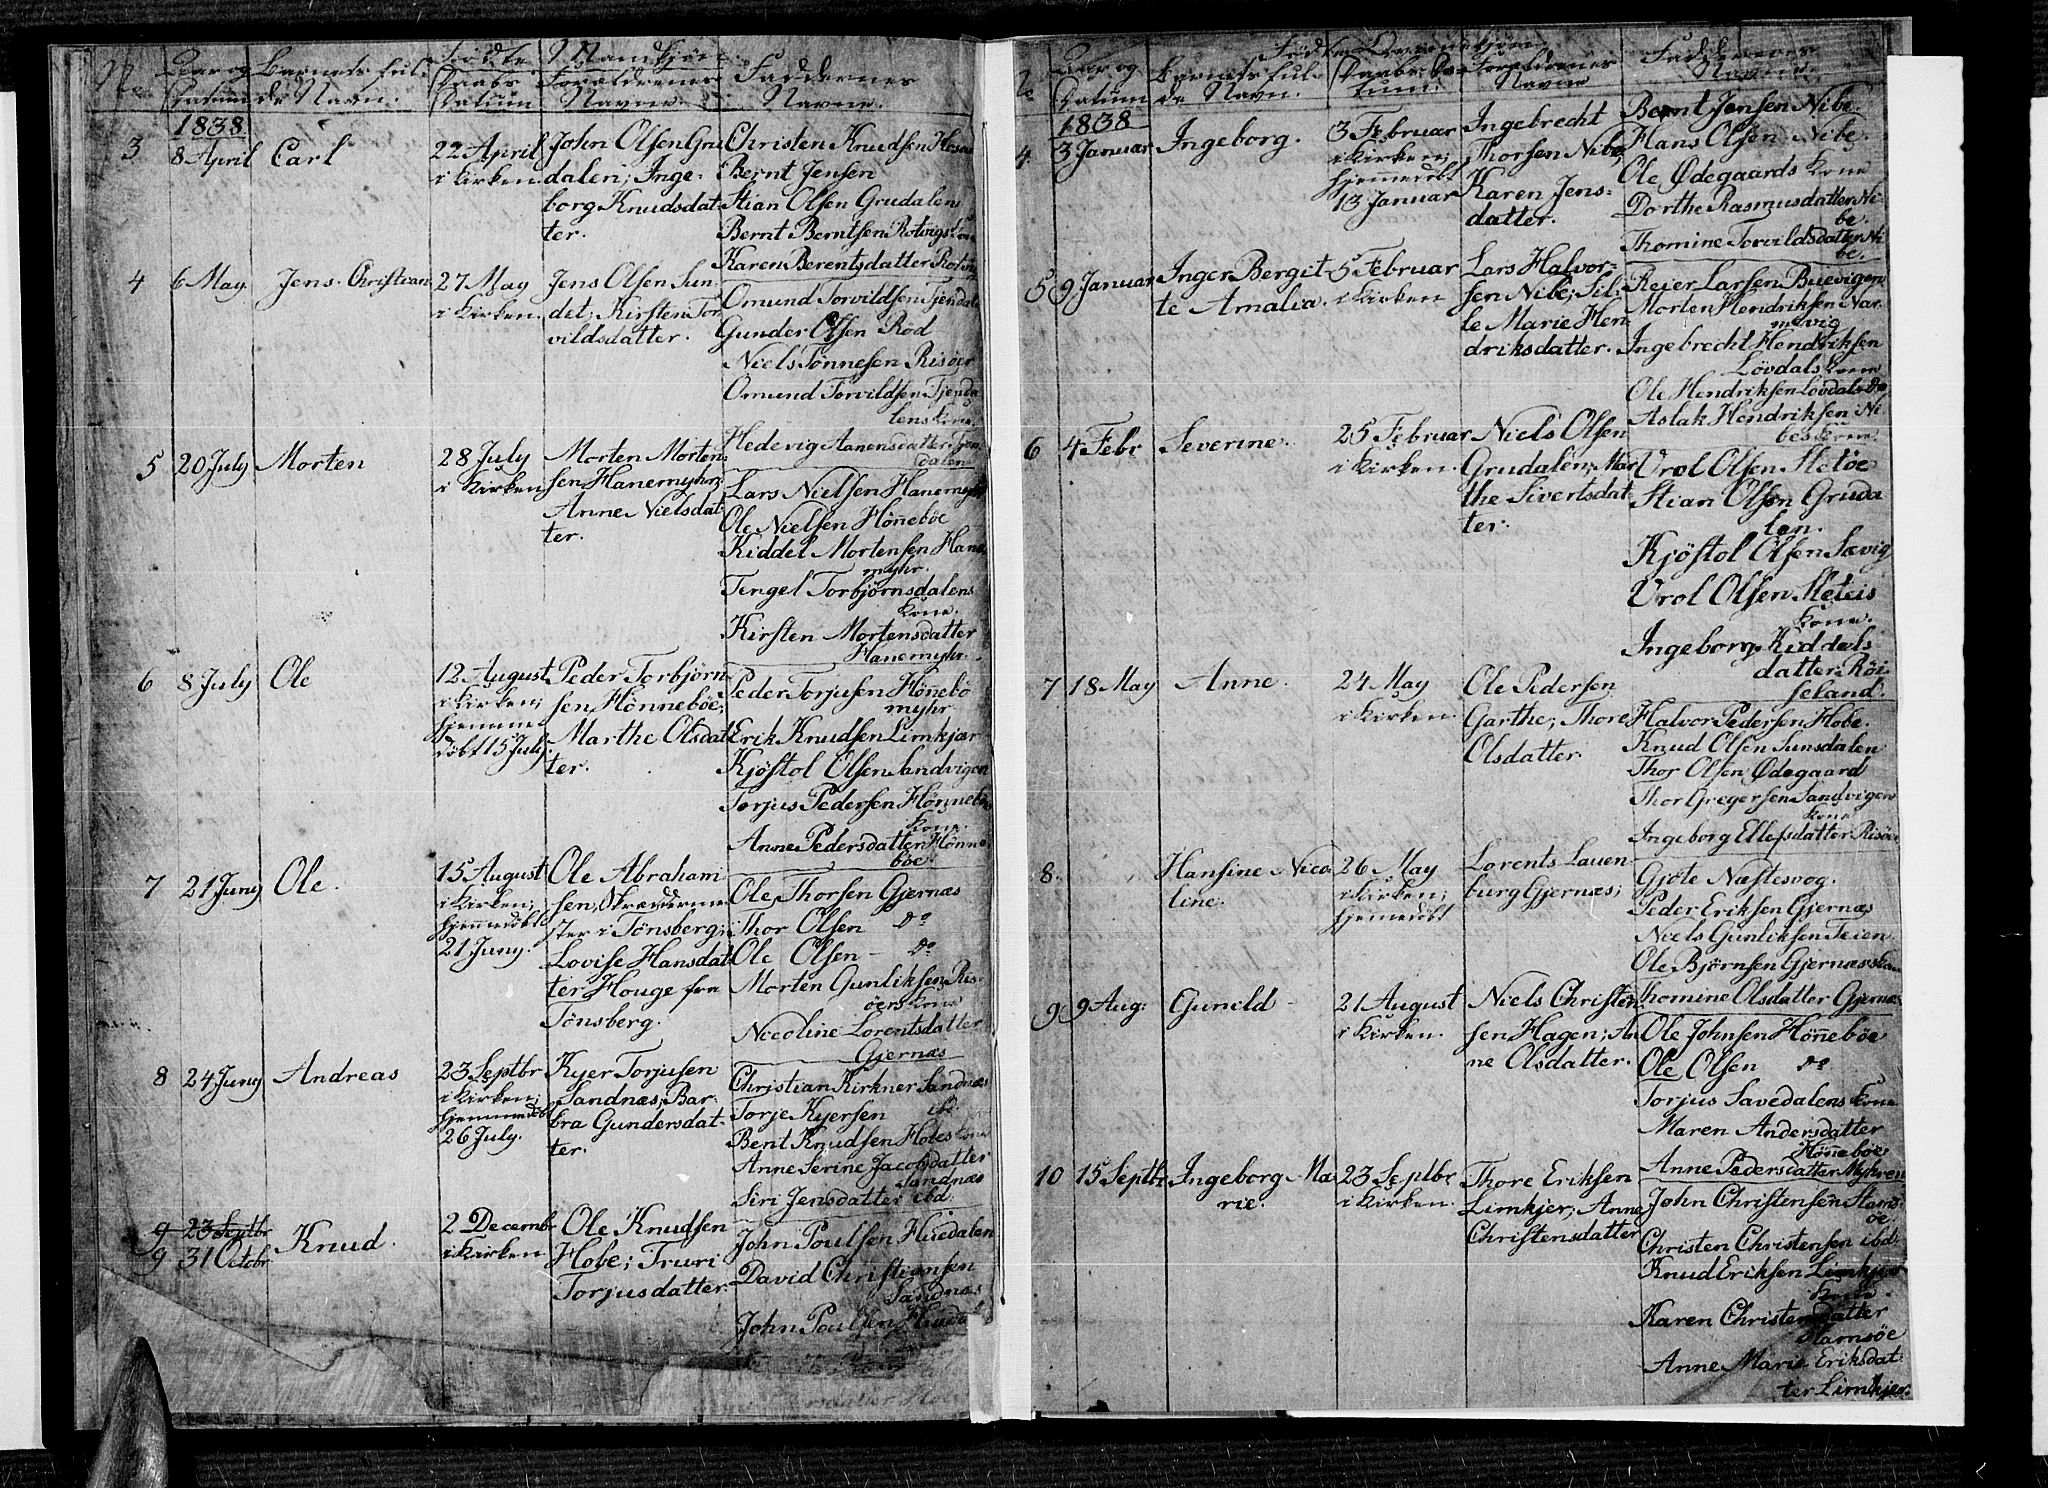 No. Aar og Barnets ful- Fødte Mandkjøn
Datum de Navn. Daabs Datum Forældrenes Navne. Faddernes Navne.
1838
3 8 April Carl
22 April
i Kirken
John Olsen Gru
dalen; Inge-
borg Knudsdat
ter.
Christen Knudsen
Bernt Jensen
Stian Olsen Grudalen
Bernt Berntsen Rotvigs
Karen Berentsdatter
4 6 May Jens Christian
27 May
i Kirken
Jens Olsen Sun
det; Kirsten Tor
vildsdatter.
Omund Torvildsen Tjendal
Gunder Olsen Röd
Niels Tönnesen Risöer
Omund Torvildsen Tjenda
lens Kone
Hedevig Aanensdatter Tjen
dalen
5 20 July Morten
28 July
i Kirken
Morten Morten
sen Hanemyhr;
Anne Nielsdat
ter.
Lars Nielsen Hanemyhr
Ole Nielsen Hönneböe
Kiddel Mortensen Hane
myhr.
Tengel Torbjørnsdalens
Kone.
Kirsten Mortensdatter
Hanemyhr.
6 8 July Ole
12 August
i Kirken;
hjemme
döbt 15 July.
Peder Torbjørn
sen Hönneböe;
Marthe Olsdat
ter.
Peder Torjusen Hönnebö
myhr
Erik Knudsen Limkjær
Kjöstol Olsen Sandvigen
Torjus Pedersen Hönneb
Kone.
Anne Pedersdatter Hönne
böe
7 21 Juny Ole.
15 August
i Kirken;
hjemmedöbt
21 Juny.
Ole Abraham
sen, Skrædderme
ster i Tönsberg;
Lovise Hansdat
ter Houge fra
Tönsberg.
Ole Thorsen Gjernæs
Thor Olsen do
Ole Olsen - do
Morten Gunliksen Ris-
öers Kone
Nicoline Lorentsdatter
Gjernæs
8 24 Juny Andreas
23 Septbr
i Kirken;
hjemmedöbt
26 July.
Kyer Torjusen
Sandnæs; Bar-
bra Gundersdat-
ter.
Christian Kirkner Sandnæs
Torje Kyersen ibd.
Bent Knudsen Hobes Kone
Anne Serine Jacobsdatter
Sandnæs
Siri Jensdatter ibd.
9 23 Septbr
9 31 Octobr Knud.
2 Decembr
i Kirken
Ole Knudsen
Hobe; Truri
Torjusdatter
John Poulsen Huedalen
David Christiansen
Sandnæs
John Poulsen Hueda
No. Aar og Datum Barnets ful- de Navn. Fødte Qvindekjøn
Daabs Da- tum. Forældrenes Navne Faddernes Navne
1838
4. 3 Januar Ingeborg.
3 Februar
i Kirken;
hjemmedöbt
13 Januar
Ingebrecht
Thorsen Nibe;
Karen Jens-
datter.
Bernt Jensen Nibe.
Hans Olsen Nibe.
Ole Ødegaards Kone
Dorthe Rasmusdatter Ni
be.
Thomine Torvildsdatter Ni
be.
5 9 Januar Inger Bergit-
te Amalia.
5 Februar
i Kirken
Lars Halvor-
sen Nibe; Sil-
le Marie Hen
driksdatter.
Reier Larsen Buevigen
Morten Hendriksen Nar
mevig
Ingebrecht Hendriksen
Lövdals Kone
Ole Hendriksen Lövdals do
Aslak Hendriksen Ni
bes Kone.
6 4 Febr Severine.
25 Februar
i Kirken.
Niels Olsen
Grudalen; Mar
the Sivertsdat
ter.
Vrol Olsen Metöe
Stian Olsen Gruda
len.
Kjöstol Olsen Sævig
Vrol Olsen
Kone.
Ingeborg Kiddels-
datter Röi-
seland.
7 18 May Anne.
24 May
i Kirken
Ole Pedersen
Garthe; Thore
Olsdatter.
Halvor Pedersen Hobe.
Knud Olsen Sunsdalen
Thor Olsen Ødegaard
Thor Gregersen Sandvigen
Kone
Ingeborg Ellefsdatter Risöe
8. Hansine Nico
line.
26 May
i Kirken;
hjemmedöbt
Lorents Lauen
burg Gjernæs;
Gjöte Næstesvog.
Peder Eriksen Gjernæs
Niels Gunliksen Feien
Ole Björnsen Gjernæs Kone
Thomine Olsdatter Gjernæs
9 9 Aug: Gunild
21 August
i Kirken.
Niels Christen
sen Hagen; An
ne Olsdatter.
Ole Johnsen Hönneböe
Ole Olsen do
Torjus Savedalens Kone
Maren Andersdatter
Hönneböe
Anne Pedersdatter Myhren
10 15 Septbr Ingeborg Ma-
rie.
23 Septbr
i Kirken.
Thore Eriksen
Limkjer; Anne
Christensdatter
John Christensen Hams-
öe
Christen Christensen ibd.
Knud Eriksen Limkjer
Kone.
Karen Christensdatter
Hamsöe
Anne Marie Eriksdat
ter Limkjer.